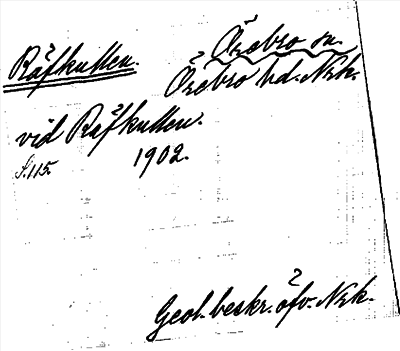 Räfkullen.
Örebro sn.
Örebro hd. Nrk.
vid Räfkullen.
S. 115.
1902.
Geol. beskr. öfv. Nrk.